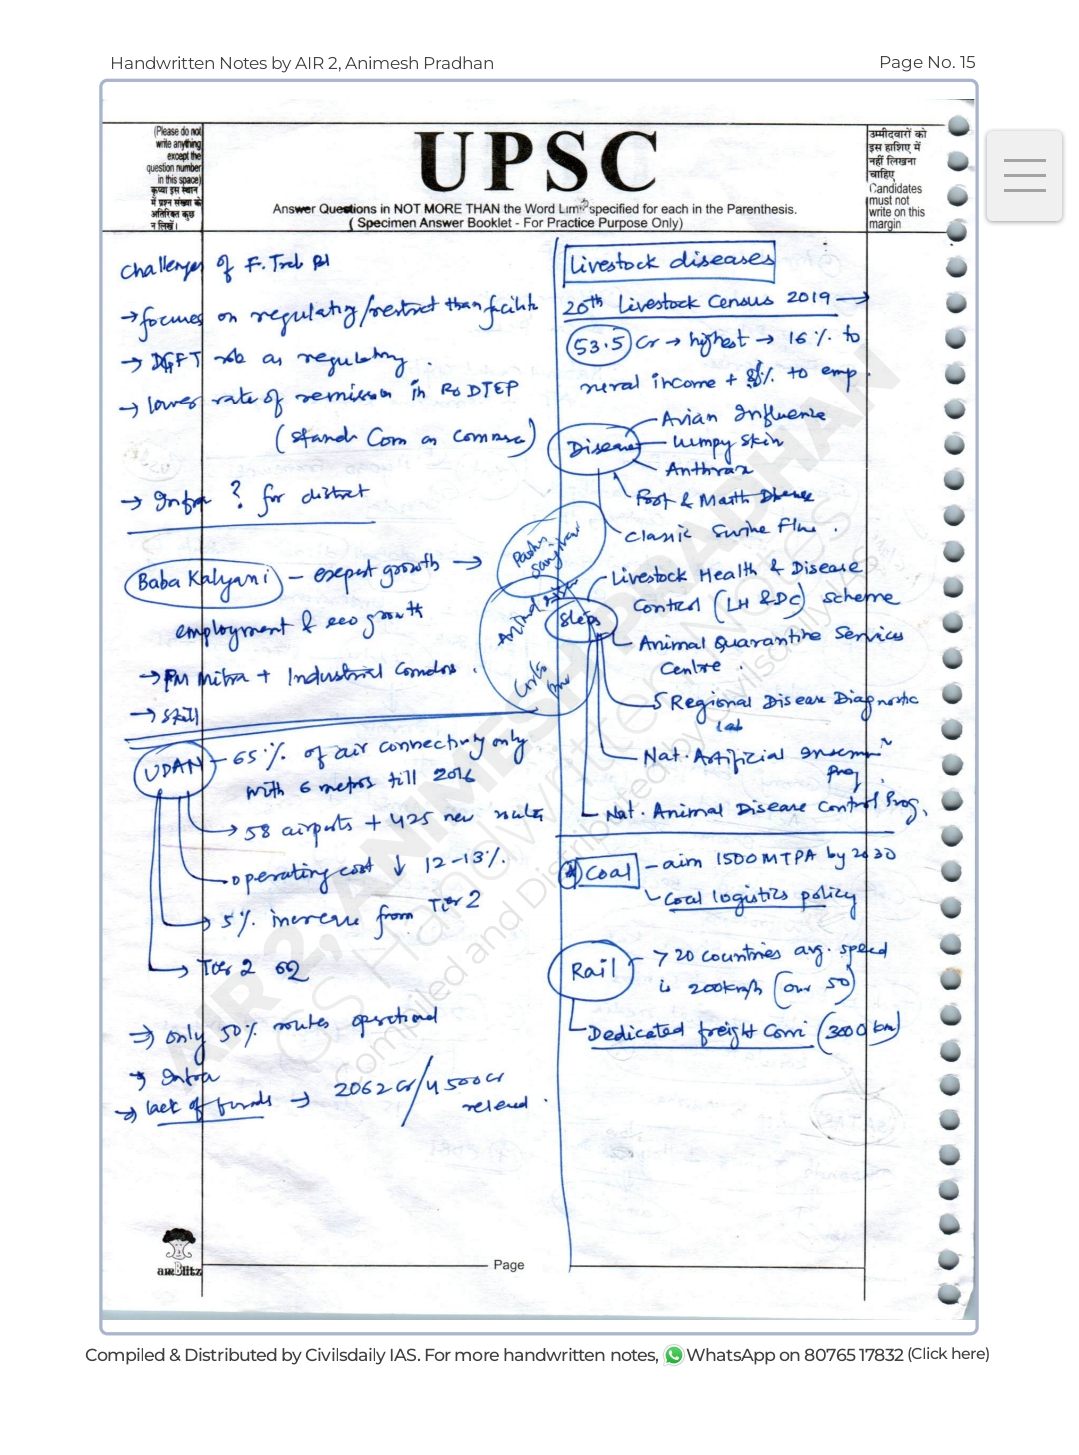 Handwritten Notes by AIR 2, Animesh Pradhan
Page No. 15
(Please do not
write anything
except the
question number
in this space)
कृप्या इस स्थान
में प्रश्न संख्या के
अतिरिक्त कुछ
न लिखें।
UPSC
Answer Questions in NOT MORE THAN the Word Limit specified for each in the Parenthesis.
( Specimen Answer Booklet - For Practice Purpose Only)
उम्मीदवारों को
इस हाशिए में
नहीं लिखना
चाहिए
Candidates
must not
write on this
margin
Challenges of F. Trade
→ focuses on regulating/restrict than facilite
→ DGFT role as regulatory.
→ lower rate of remission in RoDTEP
(Stand Com on Commerce)
→ Infra ? for district
Baba Kalyani – export growth →
employment & eco growth
→ PM Mitra + Industrial Corridors.
→ Skill
UDAN – 65% of air connectivity only
with 6 metros till 2016
→ 58 airports + 425 new routes
operating cost ↓ 12-13%.
→ 5% increase from Tier 2
→ Tier 2
⇒ only 50% routes operational
→ Infra
→ lack of funds → 2062 Cr/4500 Cr
released.
Livestock diseases
20th Livestock Census 2019 →
53.5 Cr → highest → 16% to
rural income + 8% to emp.
Disease
Avian Influenza
Lumpy Skin
Anthrax
Foot & Mouth Disease
Classic Swine Flu.
Pashu
Sanjivni
Steps
Livestock Health & Disease
Control (LH & DC) scheme
Animal Quarantine Services
Centre.
5 Regional Disease Diagnostic
lab
Nat. Artificial Insemn
prog.
Nat. Animal Disease Control Prog.
Coal – aim 1500 MTPA by 2030
Coal logistics policy
Rail – > 20 countries avg. speed
is 200km/h (our 50)
Dedicated freight Corri (3000 km)
AIR 2, ANIMESH PRADHAN
GS Handwritten Notes
Compiled and Distributed by Civilsdaily IAS
Page
Compiled & Distributed by Civilsdaily IAS. For more handwritten notes, WhatsApp on 80765 17832 (Click here)